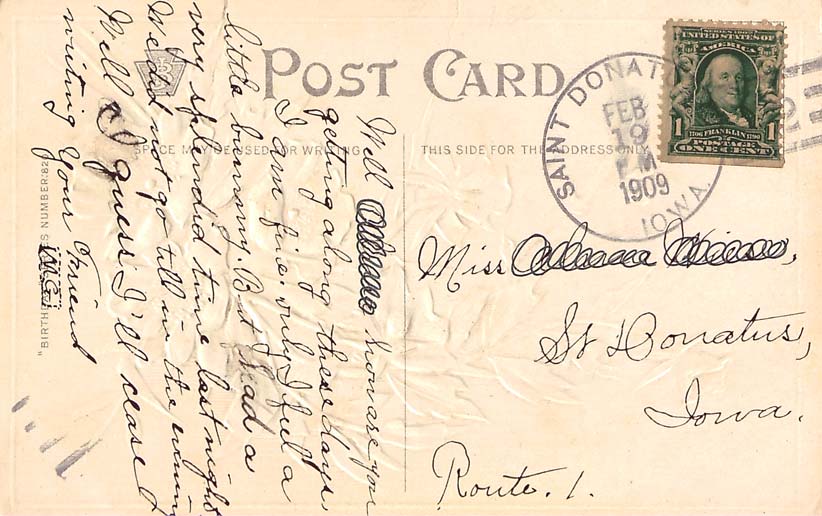 POST CARD
SPACE MAY BE USED FOR WRITING
THIS SIDE FOR THE ADDRESS ONLY
SERIES 1902
UNITED STATES OF
AMERICA
1706 FRANKLIN 1790
POSTAGE
1 ONE CENT 1
SAINT DONATUS
FEB
19
PM
1909
IOWA.
Well how are you
getting along these days
I am fine. only I feel a
little bummy. But I had a
very splendid time last night
We did not go till in the evening
Well I guess I'll cease
writing Your Friend
M.G.
Miss
St Donatus,
Iowa.
Route. 1.
"BIRTH
S NUMBER:82